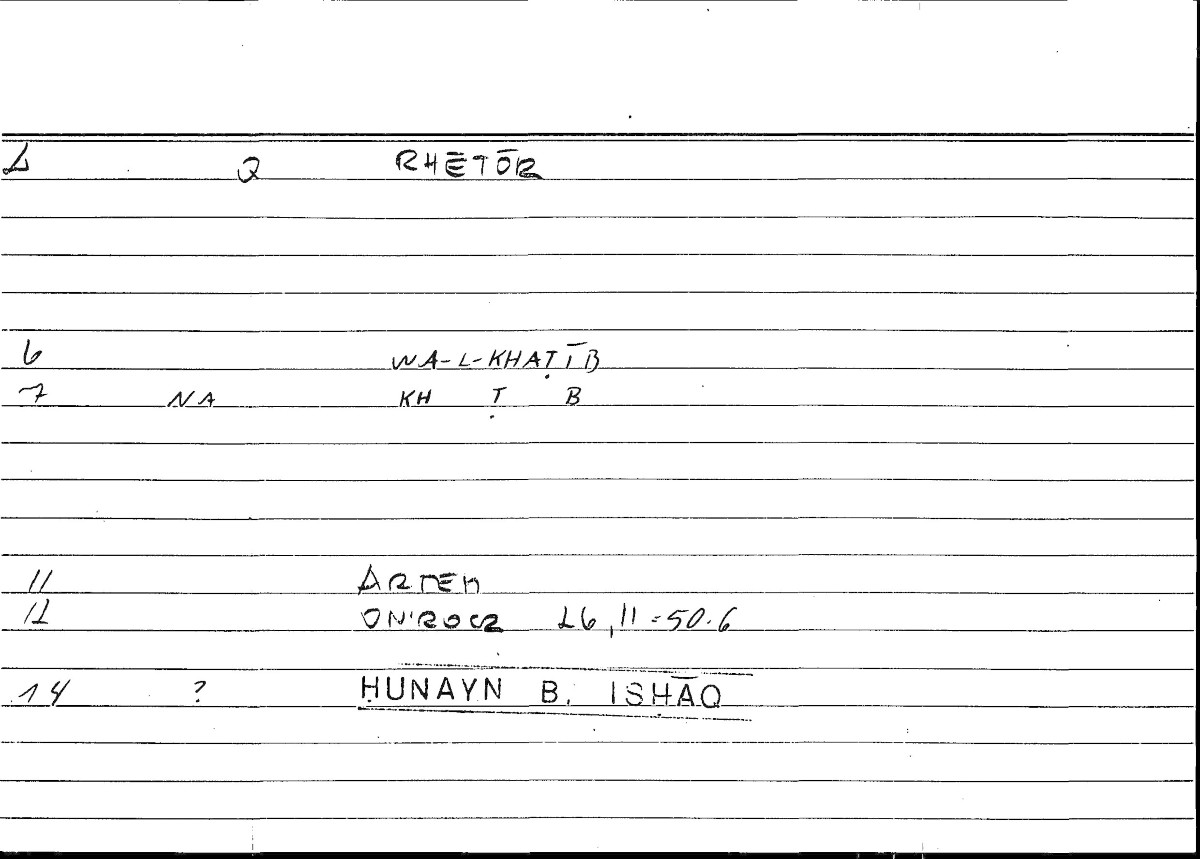 2 Q RHĒTŌR
6 WA-L-KHAṬĪB
7 NA KH Ṭ B
11 ARTEM
12 ONIROCR 26,11=50.6
14 ? ḤUNAYN B. ISḤĀQ